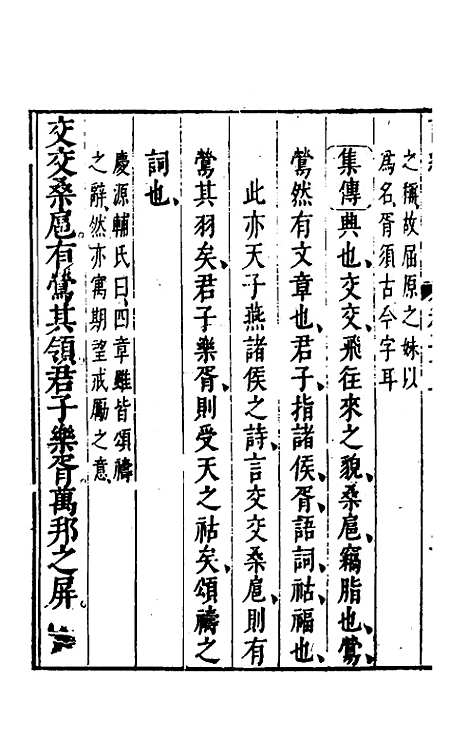 之稱故屈原之妹以
爲名胥須古今字耳
集傳興也、交交、飛往來之貌、桑扈、竊脂也、鶯、
鶯然有文章也、君子、指諸侯、胥、語詞、祜、福也、
此亦天子燕諸侯之詩、言交交桑扈、則有
鶯其羽矣、君子樂胥、則受天之祜矣、頌禱之
詞也、
慶源輔氏曰、四章雖皆頌禱
之辭、然亦寓期望戒勵之意、
交交桑扈、有鶯其領、君子樂胥、萬邦之屏。